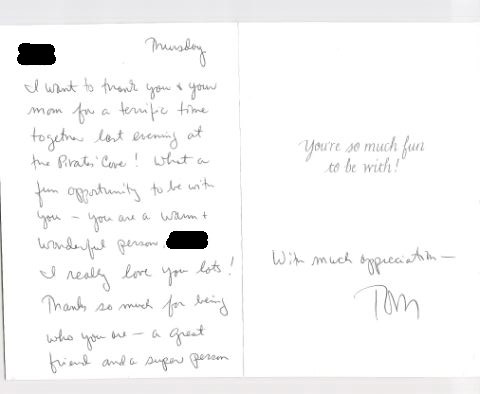 Thursday
I want to thank you + your
mom for a terrific time
together last evening at
the Pirates' Cove! What a
fun opportunity to be with
you – you are a warm +
wonderful person
I really love you lots!
Thanks so much for being
who you are – a great
friend and a super person
You're so much fun
to be with!
With much appreciation –
Tom